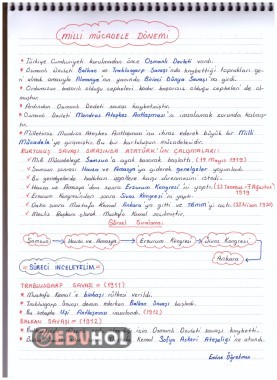 MİLLİ MÜCADELE DÖNEMİ
* Türkiye Cumhuriyeti kurulmadan önce Osmanlı Devleti vardı.
* Osmanlı Devleti Balkan ve Trablusgarp Savaşı'nda kaybettiği toprakları geri almak amacıyla Almanya'nın yanında Birinci Dünya Savaşı'na girdi.
* Ordumuzun başarılı olduğu cepheleri kadar başarısız olduğu cepheleri de olmuştur.
* Ardından Osmanlı Devleti savaşı kaybetmiştir.
* Osmanlı Devleti Mondros Ateşkes Antlaşması'nı imzalamak zorunda kalmıştır.
* Milletimiz Mondros Ateşkes Antlaşması'nı itiraz ederek büyük bir Milli Mücadele'ye girişmiştir. Bu bir kurtuluşun mücadelesidir.
KURTULUŞ SAVAŞI SIRASINDA ATATÜRK'ÜN ÇALIŞMALARI:
Milli Mücadeleye Samsun'a ayak basarak başlattı. (19 Mayıs 1919)
Samsun sonrası Havza ve Amasya'ya giderek genelgeler yayınladı.
Bu genelgelerde halktan
Havza ve Amasya'dan sonra Erzurum Kongresi'ni yaptı. (23 Temmuz-7 Ağustos 1919)
Erzurum Kongresinden sonra Sivas Kongresi'ni yaptı.
Daha sonra Mustafa Kemal Ankara'ya gitti ve TBMM'yi açtı. (23 Nisan 1920)
Meclis Başkanı olarak Mustafa Kemal seçilmiştir.
Samsun
Havza ve Amasya
Erzurum Kongresi
Sivas Kongresi
Ankara
SÜRECİ İNCELEYELİM
TRABLUSGARP SAVAŞI = (1911)
* Mustafa Kemal'e Binbaşı rütbesi verildi.
* Trablusgarp Savaşı devam ederken Balkan Savaşı başladı.
* Bu sebeple Uşi Antlaşması imzalandı. (1912)
BALKAN SAVAŞI = (1912)
için Osmanlı Devleti savaşı kaybetti.
Kemal Sofya Askeri Ataşeliği'ne atandı.
EDUHOL
Emine Öğretmen